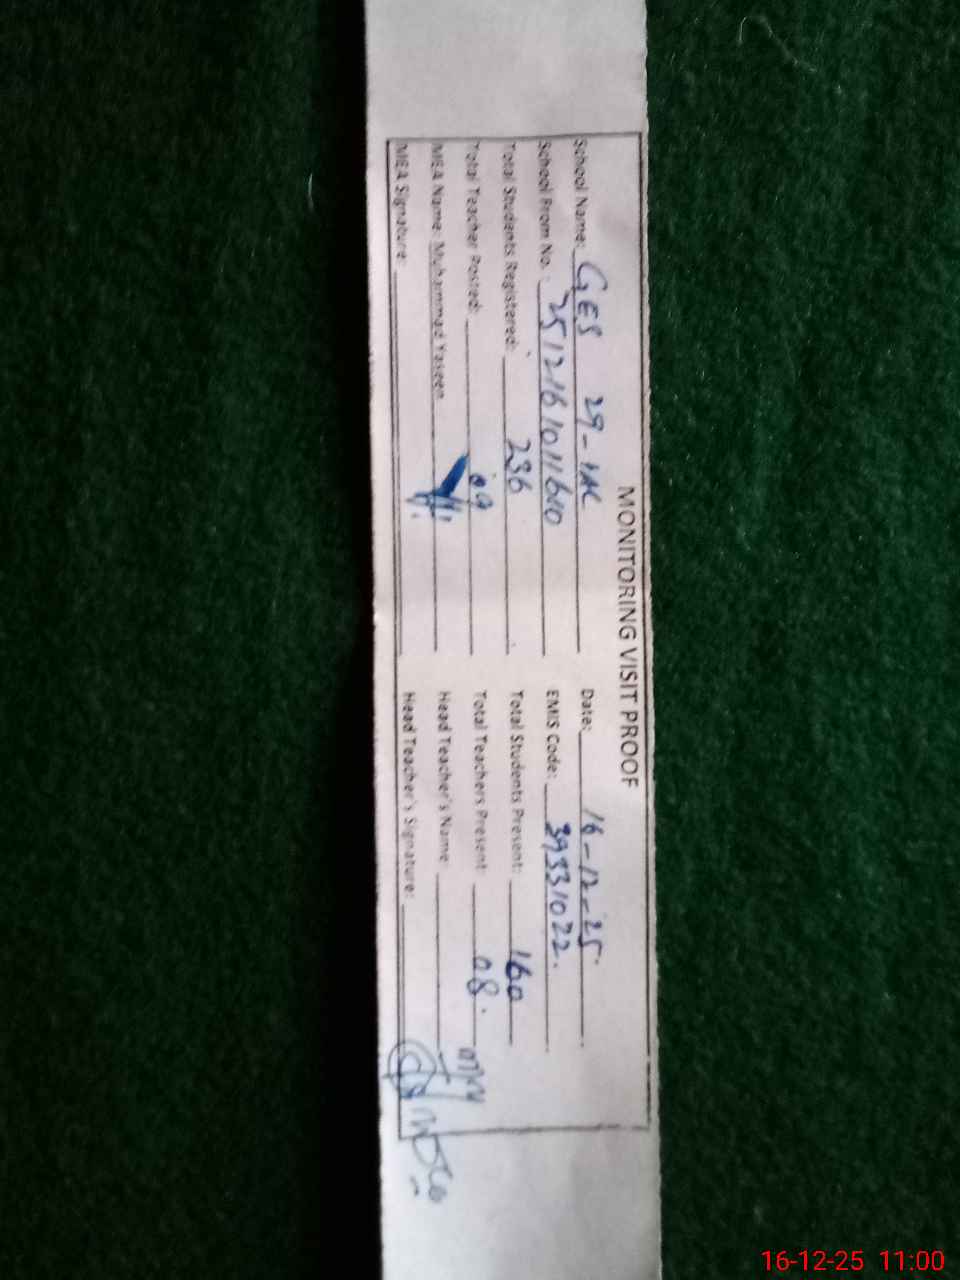 MONITORING VISIT PROOF
School Name: GES 29-4AC Date: 16-12-25.
School From No. : 2512161011610 EMIS Code: 39331022.
Total Students Registered: 236 Total Students Present: 160
Total Teacher Posted: 09 Total Teachers Present: 08.
MEA Name: Muhammad Yaseen Head Teacher's Name:
MEA Signature: Head Teacher's Signature:
16-12-25 11:00